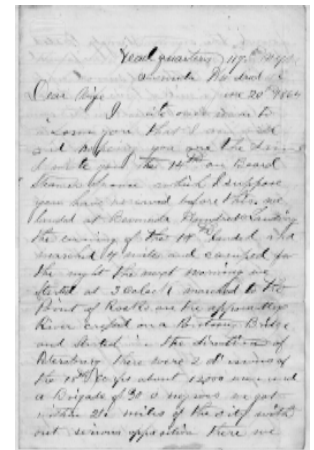 Head quarters 117th Regt
Dear Wife June 20th 1864
I write once more to
you that I am well
and hoping you are the same
I wrote you the 14th on Board
Steamer which I suppose
you have received before this. we
landed at Bermuda Hundred
the evening of the 14th landed and
marched 4 miles and camped for
the night the next morning we
Started at 3 Oclock marched to the
Point of Rocks on the appomattox
River crossed on a Pontoon Bridge
and started in the direction of
Petersburg there were 2 divisions of
the 18th Corps about 12000 men and
a Brigade of negroes we got
within 2½ miles of the city with
out serious opposition there we